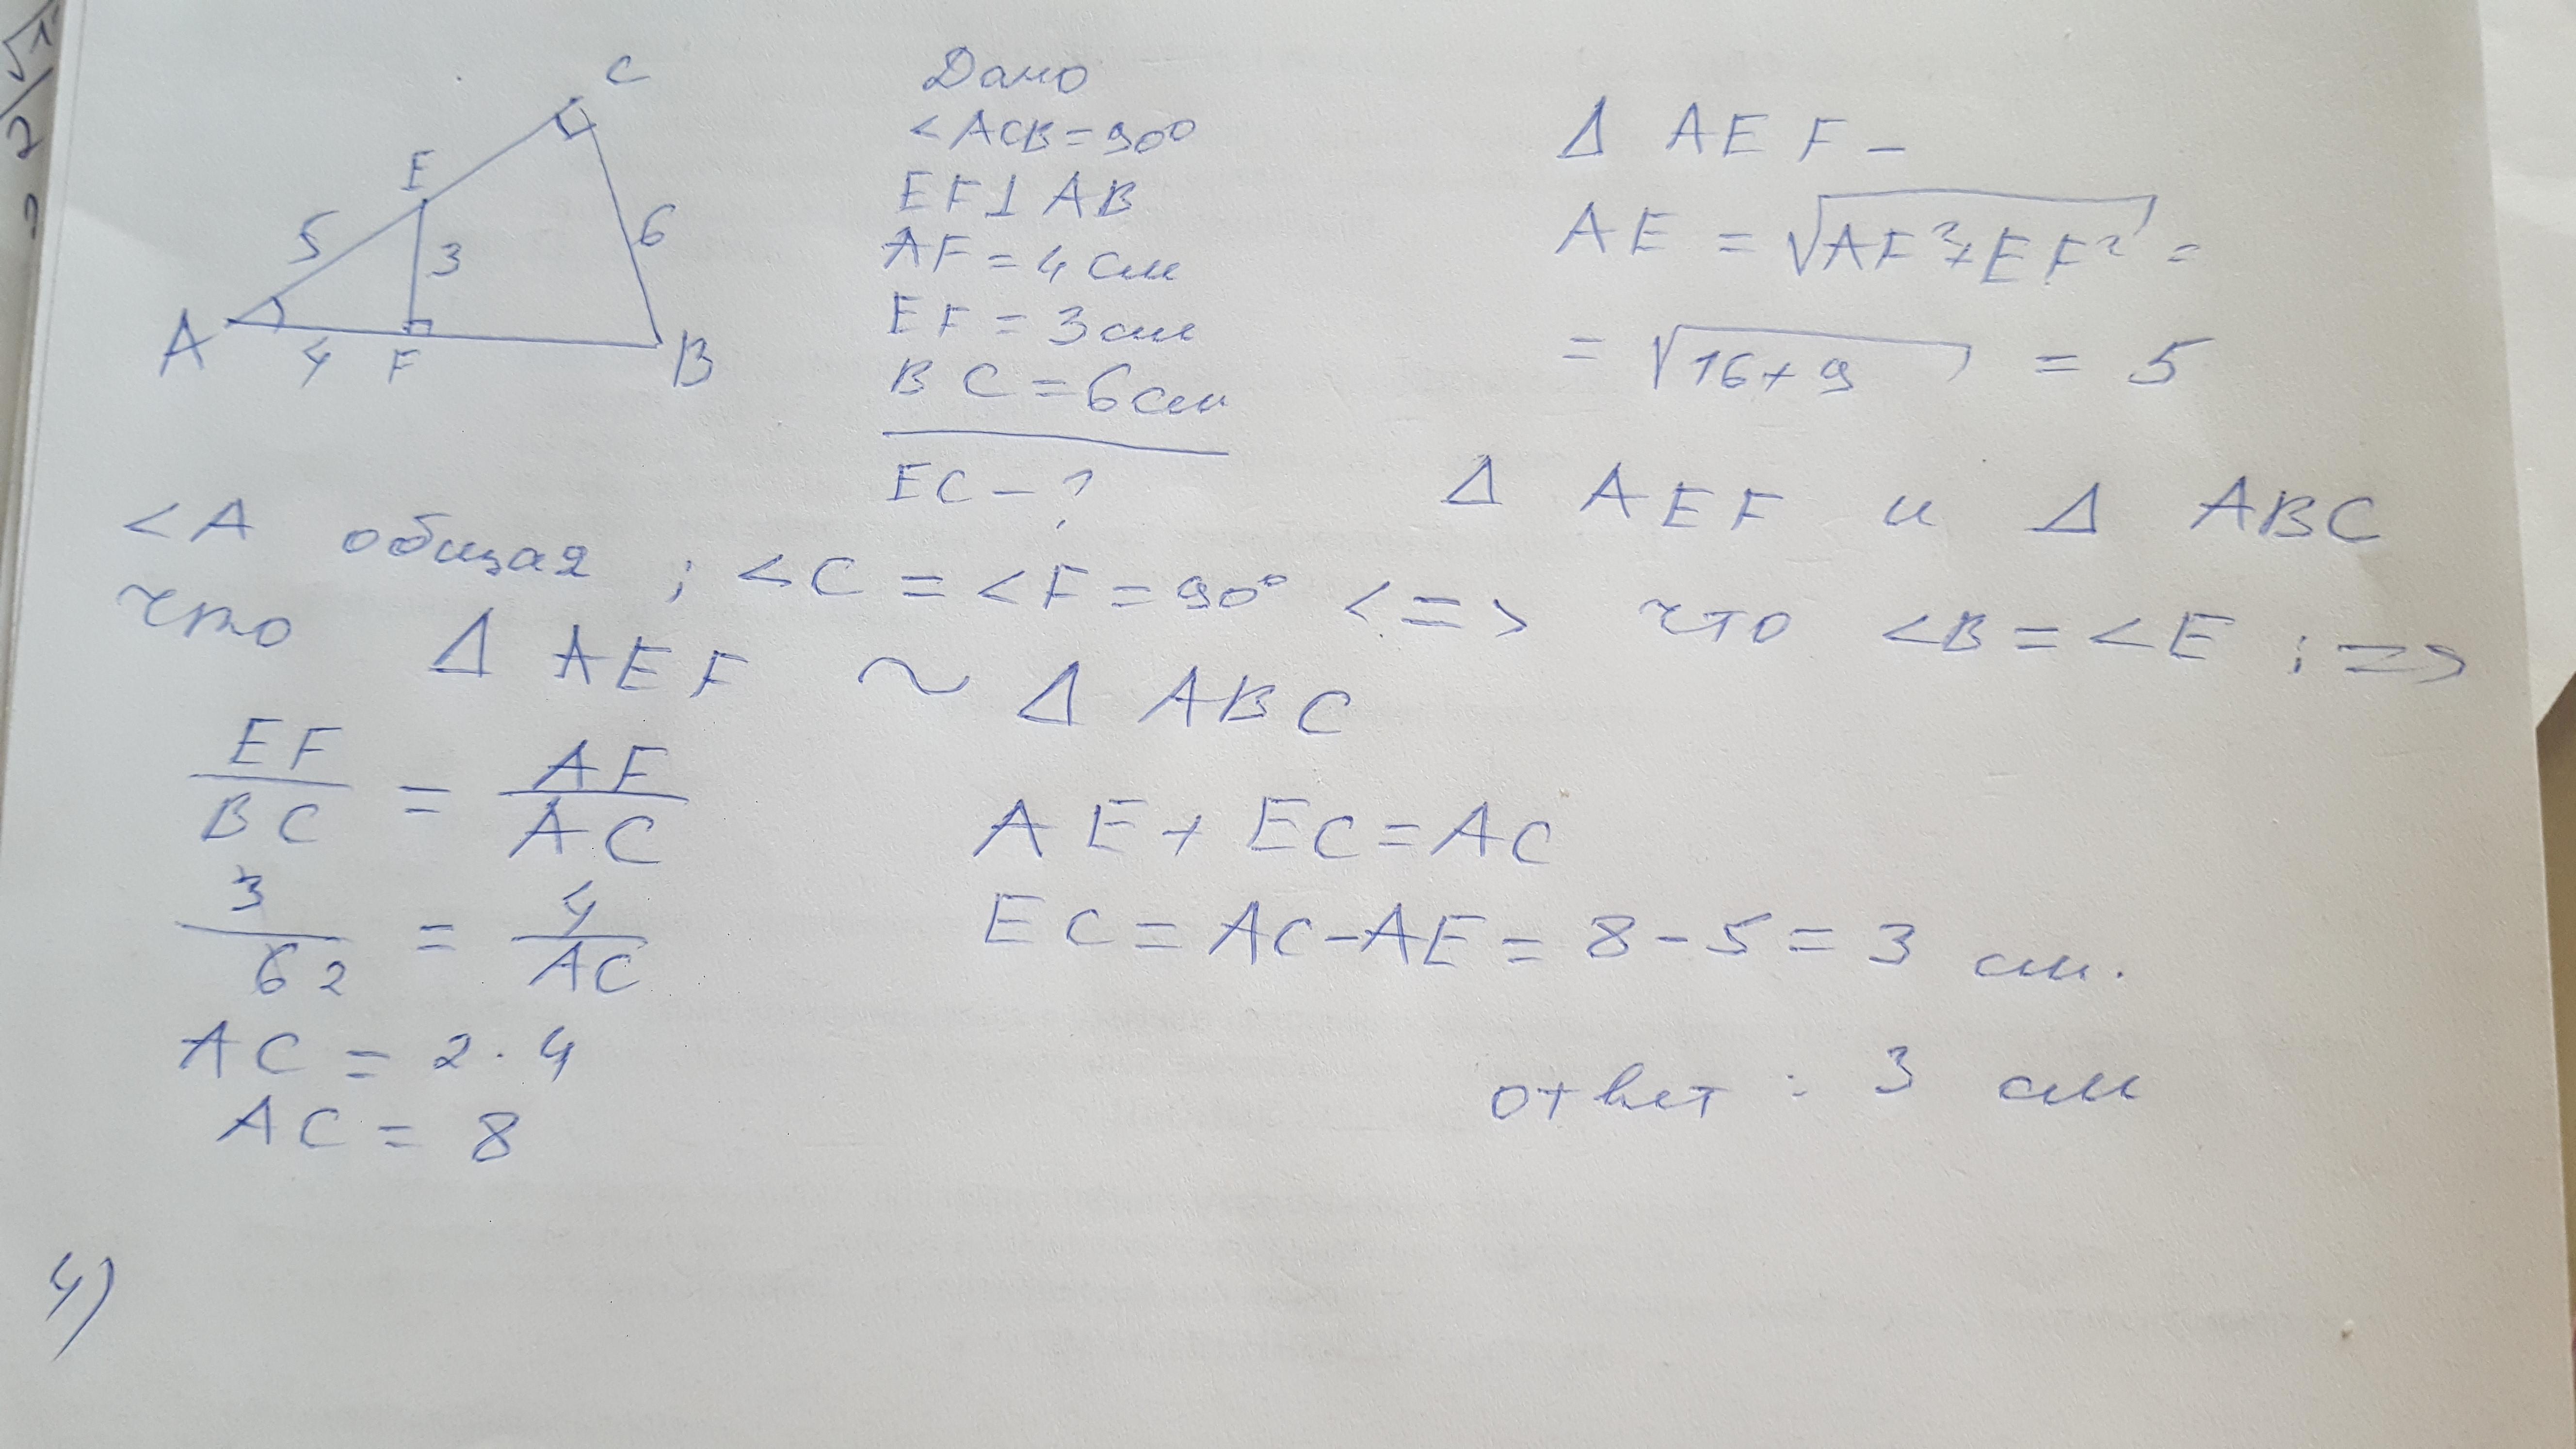 C
E
5
3
6
A
4
F
B
Дано
<ACB=90°
EF⊥AB
AF=4см
EF=3см
BC=6см
EC-?
Δ AEF-
AE = √AF²+EF² =
= √16+9 = 5
Δ AEF и Δ ABC
<A общая ; <C = <F = 90° <=> что <B = <E ; =>
что Δ AEF ~ Δ ABC
EF/BC = AF/AC
3/6 2 = 4/AC
AC = 2·4
AC = 8
AE + EC = AC
EC = AC-AE = 8-5 = 3 см.
ответ : 3 см
4)